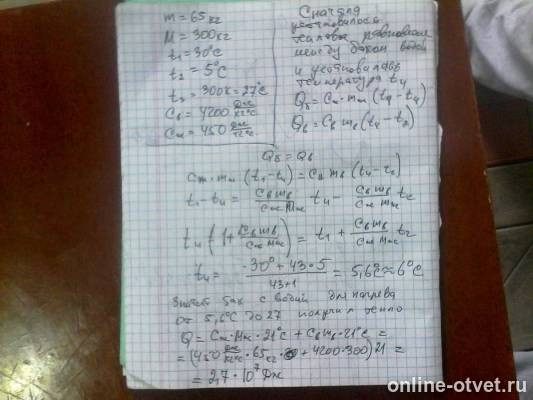 m = 65 кг
M = 300 кг
t₁ = 30°C
t₂ = 5°C
t₃ = 300K = 27°C
Cв = 4200 Дж/кг°C
Cж = 450 Дж/кг°C
Сначала
установилось
тепловое равновесие
между баком водой
и установилась
температура t₄
Qδ = Cж · mж (t₁ - t₄)
Qв = Cв mв (t₄ - t₂)
Qδ = Qв
Cж · mж (t₁ - t₄) = Cв mв (t₄ - t₂)
t₁ - t₄ = Cв mв / Cж mж t₄ - Cв mв / Cж mж t₂
t₄ (1 + Cв mв / Cж mж) = t₁ + Cв mв / Cж mж t₂
t₄ = -30° + 43 · 5 / 43+1 = 5,6°C ≈ 6°C
Значит бак с водой для нагрева
от 5,6°C до 27 получил тепло
Q = Cж · mж · 21°C + Cв mв · 21°C =
= (450 Дж/кг°C · 65 кг + 4200 · 300) 21 =
= 2,7 · 10⁷ Дж
online-otvet.ru